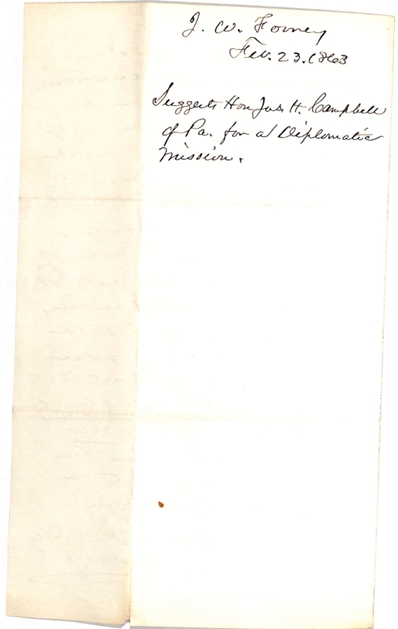 J. W. Forney
Feb. 23. 1863
Suggests Hon Jas H. Campbell
of Pa. for a Diplomatic
Mission.